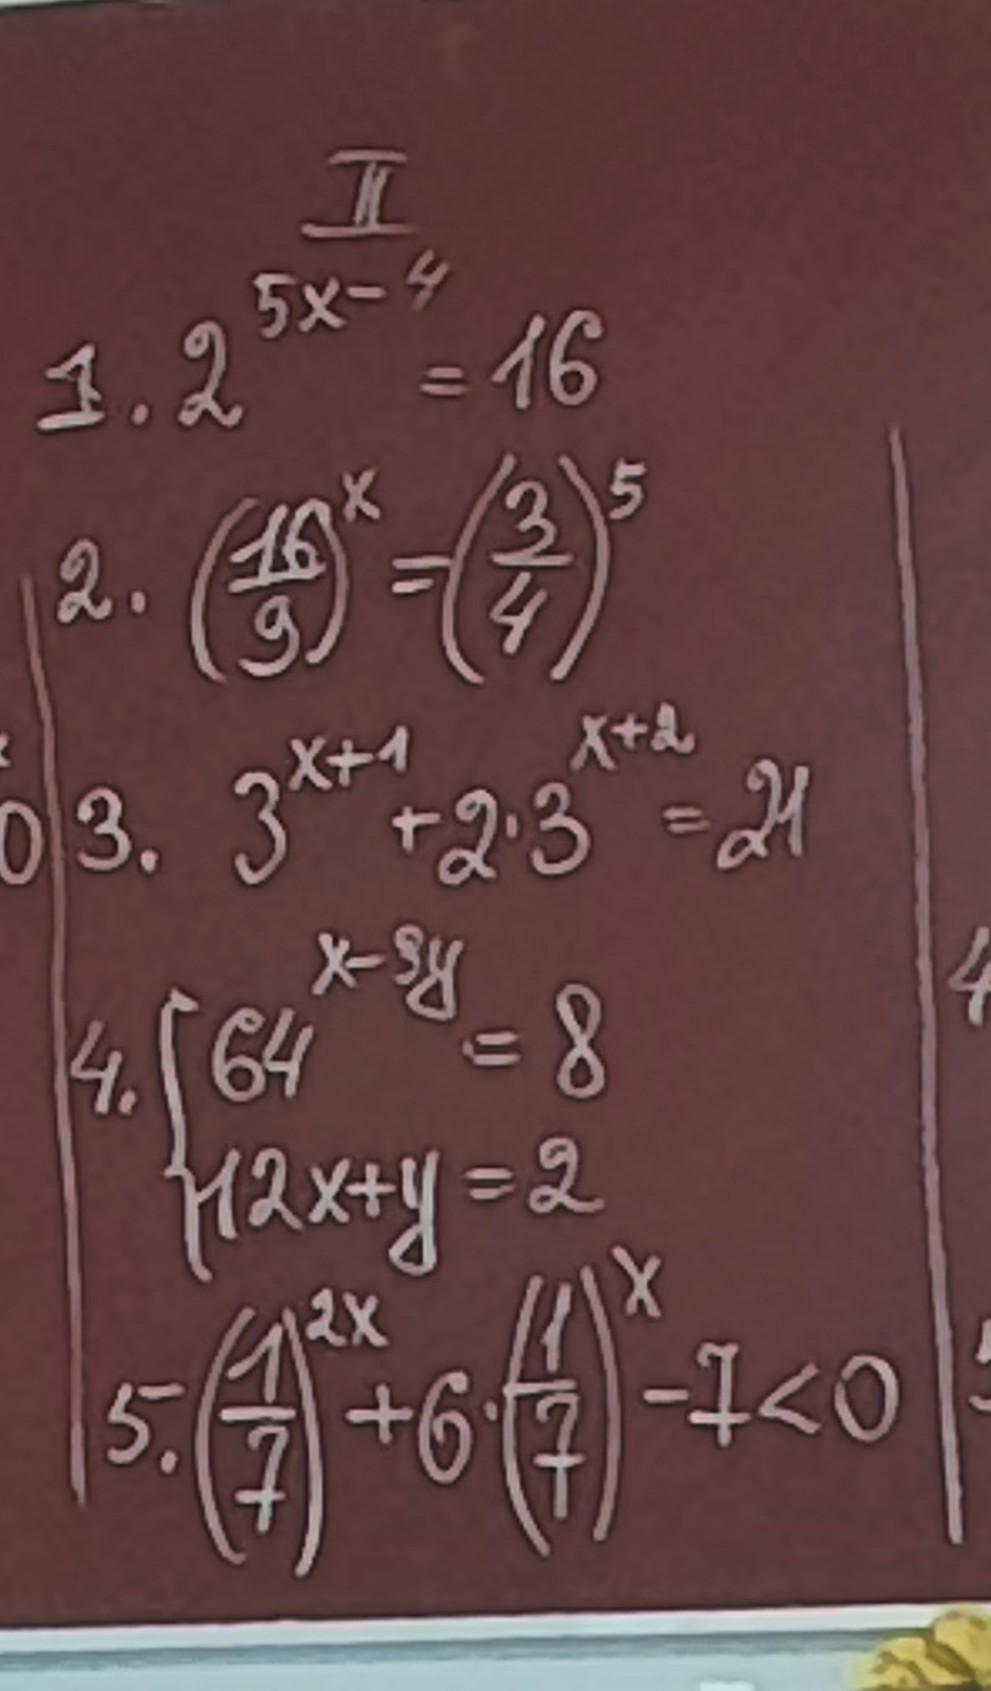 II
1. 2^{5x-4} = 16
2. (16/9)^x = (3/4)^5
3. 3^{x+1} + 2·3^{x+2} = 21
4. { 64^{x-3y} = 8
12x+y = 2
5. (1/7)^{2x} + 6·(1/7)^x - 7 < 0
0
4